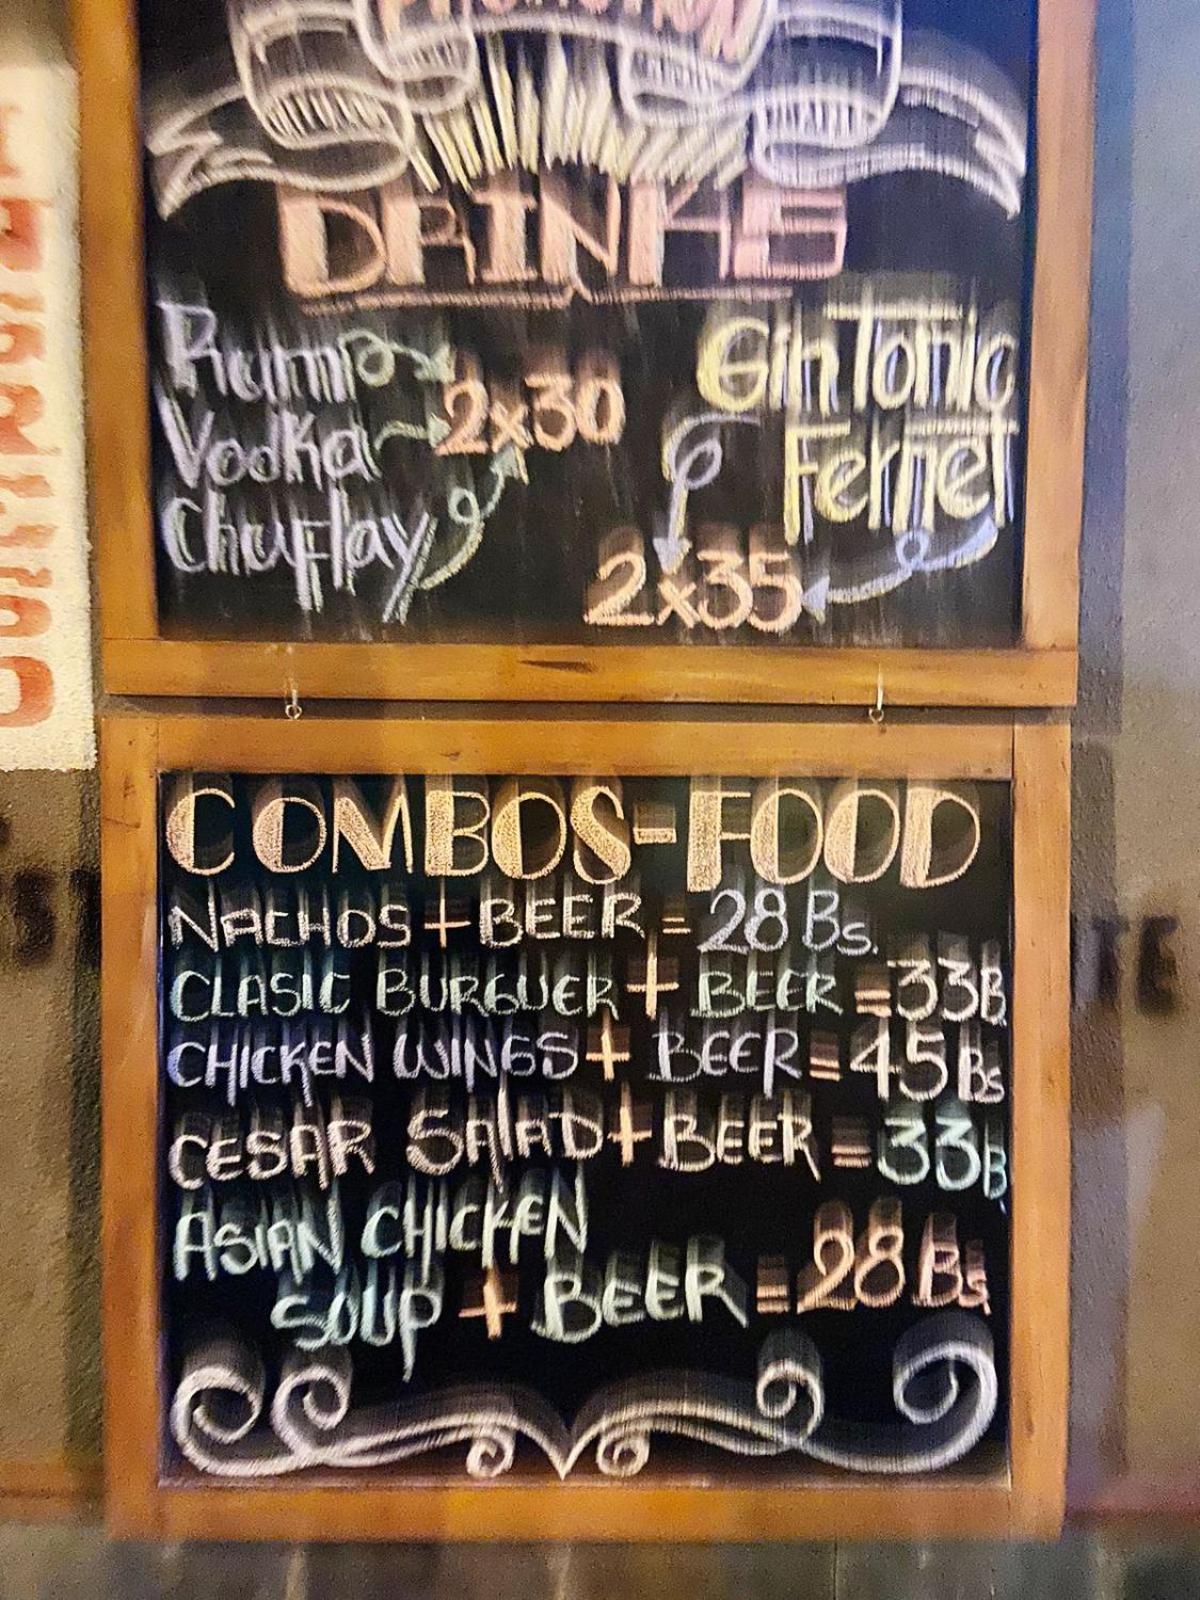 DRINKS
Rum 2x30
Vodka
Chuflay
Gin Tonic
Fernet
2x35
COMBOS-FOOD
NACHOS + BEER = 28 Bs.
CLASIC BURGUER + BEER = 33B
CHICKEN WINGS + BEER = 45 Bs
CESAR SALAD + BEER = 33B
ASIAN CHICKEN
SOUP + BEER = 28 Bs